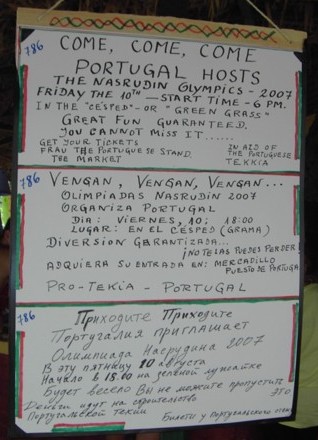 786
COME, COME, COME
PORTUGAL HOSTS
THE NASRUDIN OLYMPICS - 2007
FRIDAY THE 10TH — START TIME - 6 PM.
IN THE "CÉSPED" - OR "GREEN GRASS"
GREAT FUN GUARANTEED.
YOU CANNOT MISS IT......
GET YOUR TICKETS
FRAU THE PORTUGUESE STAND.
THE MARKET
IN AID OF
THE PORTUGUESE
TEKKIA
786
VENGAN, VENGAN, VENGAN...
OLIMPIADAS NASRUDIN 2007
ORGANIZA PORTUGAL
DIA: VIERNES, 10; 18:00
LUGAR: EN EL CÉSPED (GRAMA)
DIVERSION GARANTIZADA...
¡NO TE LAS PUEDES PERDER!
ADQUIERA SU ENTRADA EN: MERCADILLO
PUESTO DE PORTUGAL
PRO-TEKIA - PORTUGAL
786
Приходите Приходите
Португалия приглашает
Олимпиада Насрудина 2007
В эту пятницу 10 августа
Начало в 18.00 на зеленой лужайке
Будет весело Вы не можете пропустить
это
Деньги идут на строительство
Португальской текии
Билеты у португальского